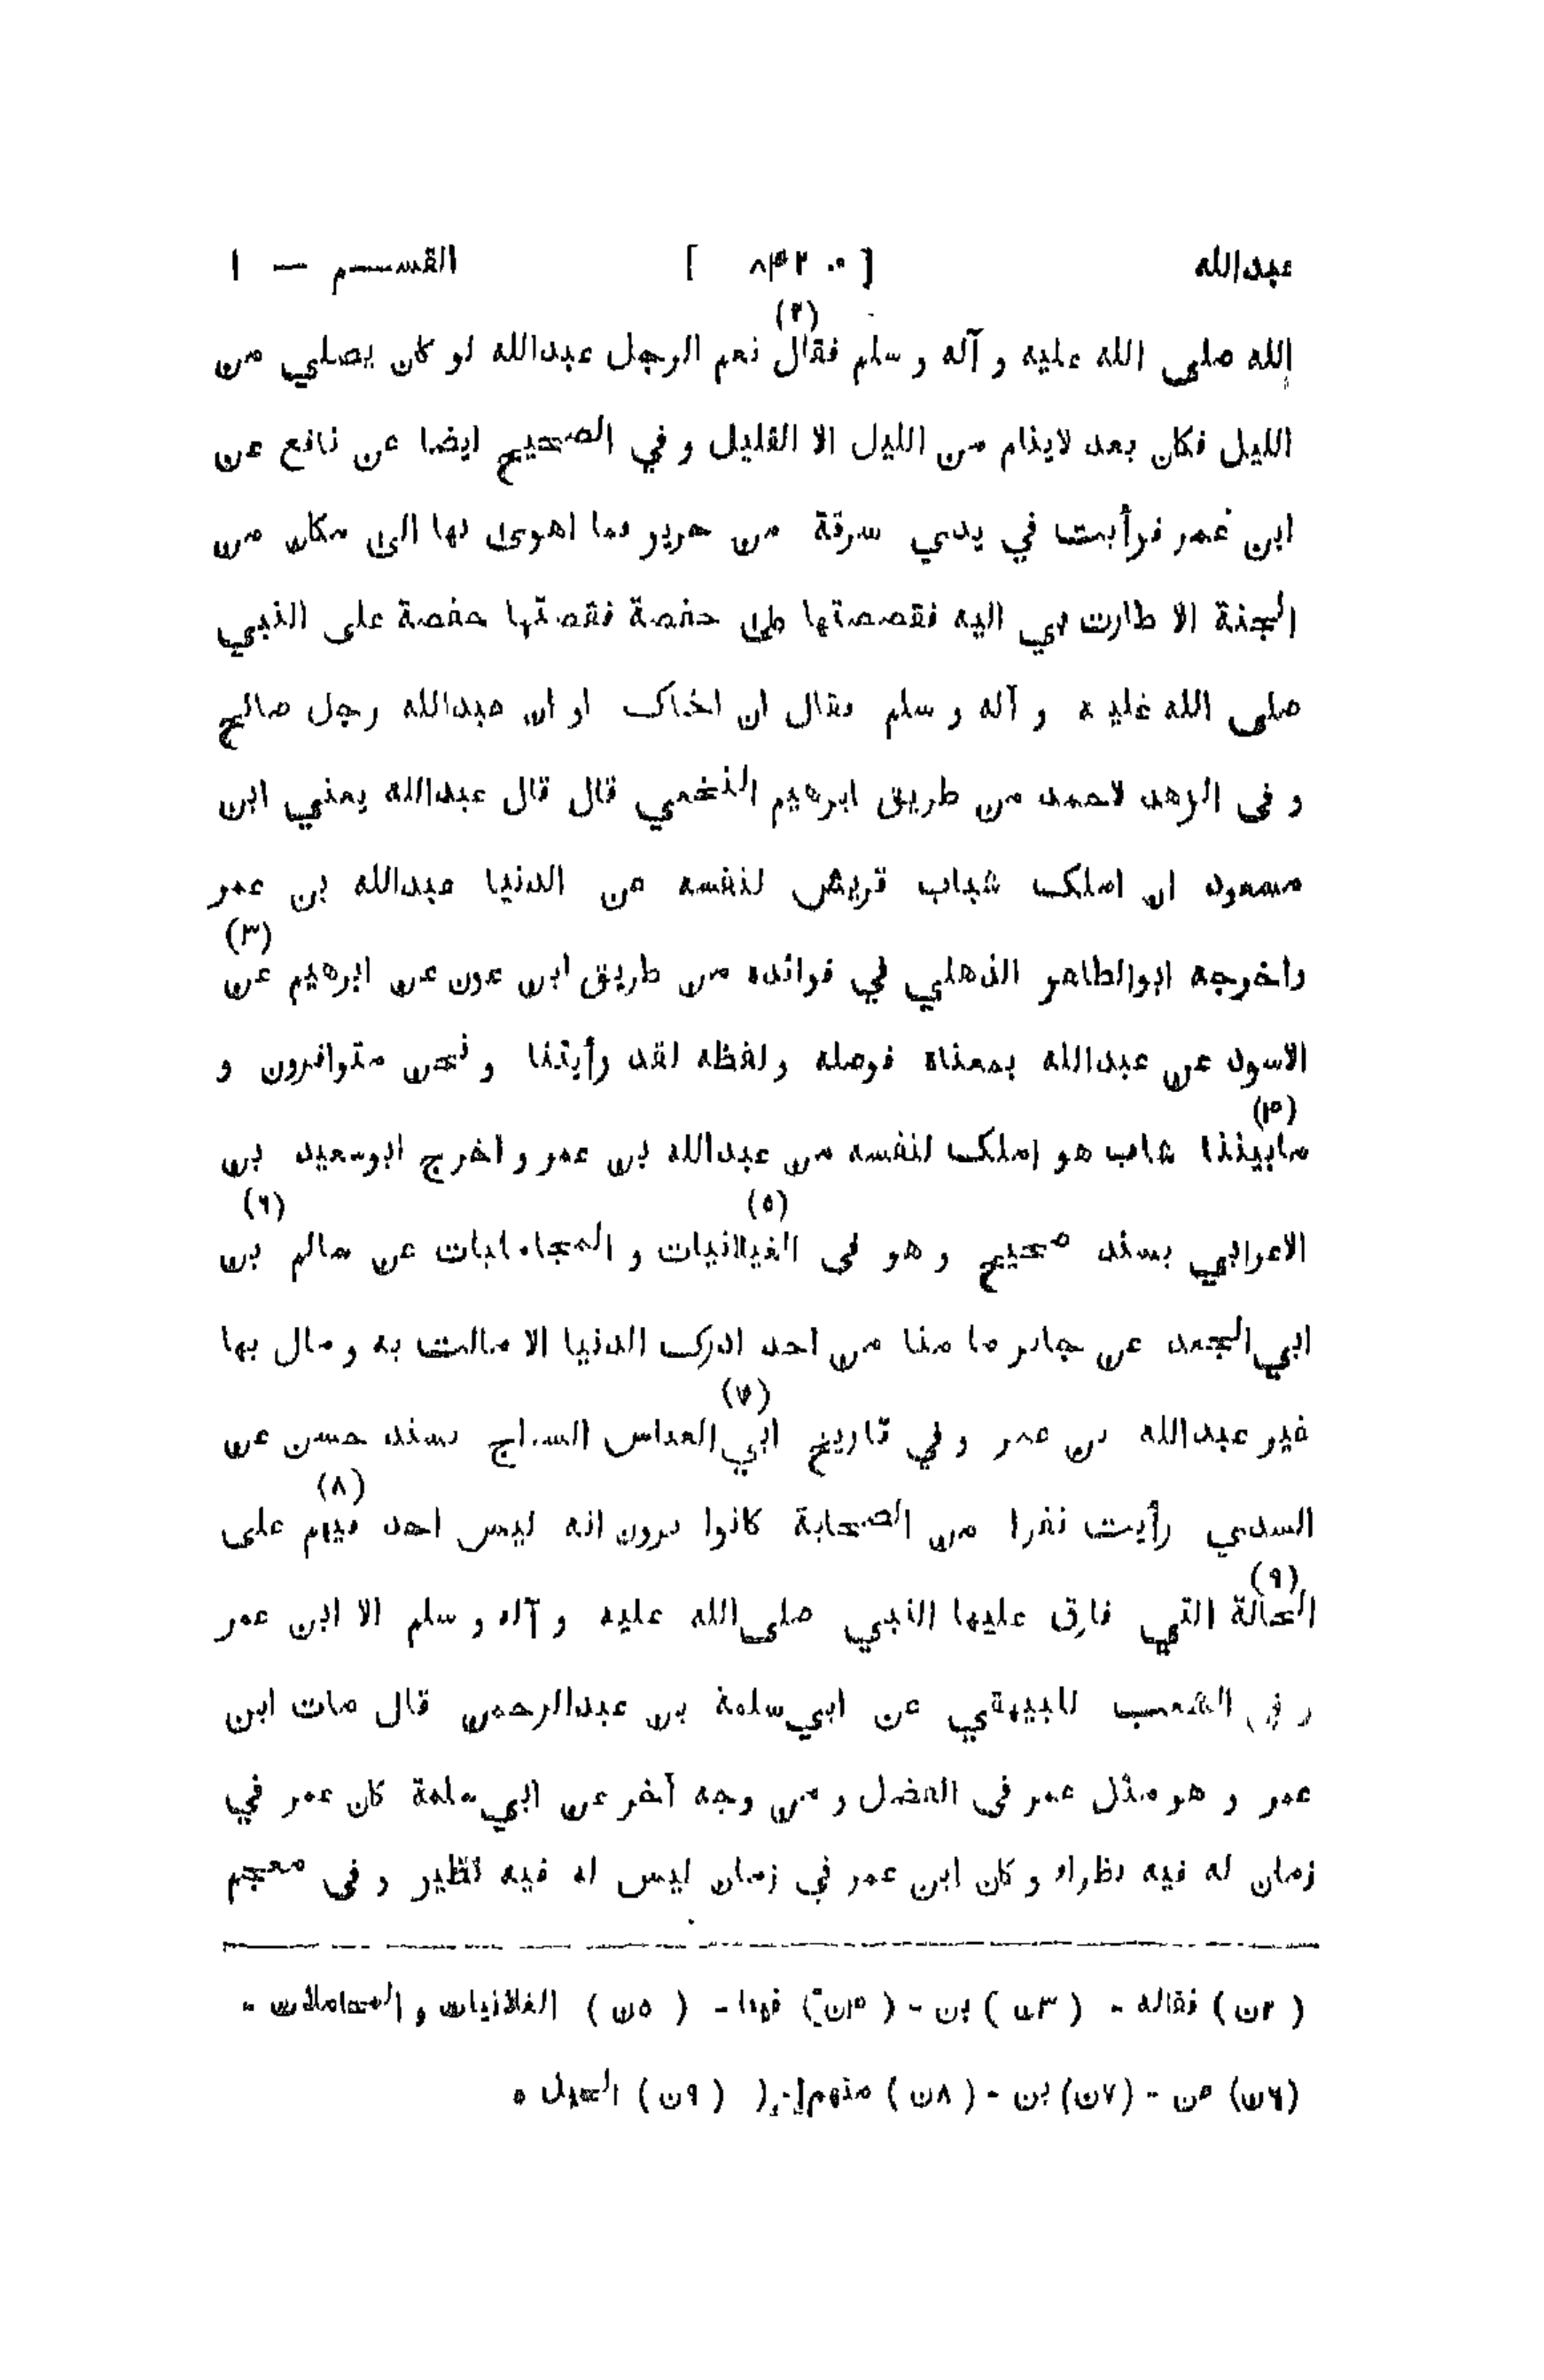 عبدالله [ ٨٣٢٠ ] القســـم — ١
الله صلى الله عليه و آله و سلم فقال (٢) نعم الرجل عبدالله لو كان يصلي من
الليل فكان بعد لاينام من الليل الا القليل و في الصحيح ايضا عن نافع عن
ابن عمر فرأيت في يدي سرقة من حرير فما اهوى بها الى مكان من
الجنة الا طارت بي اليه فقصصتها على حفصة فقصتها حفصة على النبي
صلى الله عليه و آله و سلم فقال ان اخاك او ان عبدالله رجل صالح
و في الزهد لاحمد من طريق ابرهيم النخعي قال قال عبدالله يعني ابن
مسعود ان املك شباب قريش لنفسه من الدنيا عبدالله بن عمر
واخرجه ابوالطاهر الذهلي في فوائده من طريق ابن عون عن ابرهيم عن (٣)
الاسود عن عبدالله بمعناه فوصله و لفظه لقد رأيتنا و نحن متوافرون و
مابيننا (٤) شاب هو املك لنفسه من عبدالله بن عمر و اخرج ابوسعيد بن
الاعرابي بسند صحيح و هو في الغيلانيات (٥) و المحامليات عن سالم بن (٦)
ابي الجعد عن جابر ما منا من احد ادرك الدنيا الا مالت به و مال بها
غير عبدالله بن عمر و في تاريخ ابي (٧) العباس السراج بسند حسن عن
السدي رأيت نفرا من الصحابة كانوا يرون انه ليس احد فيهم (٨) على
الحالة (٩) التي فارق عليها النبي صلى الله عليه و آله و سلم الا ابن عمر
و في الشعب للبيهقي عن ابي سلمة بن عبدالرحمن قال مات ابن
عمر و هو مثل عمر في الفضل و من وجه آخر عن ابي سلمة كان عمر في
زمان له فيه نظراء و كان ابن عمر في زمان ليس له فيه نظير و في معجم
( ٢ن ) فقاله - ( ٣ن ) بن - ( ٤ن ) فهنا - ( ٥ن ) الغلانيات و المحاملات -
(٦ن) من - (٧ن) بن - ( ٨ن ) منهم ( ٩ن )